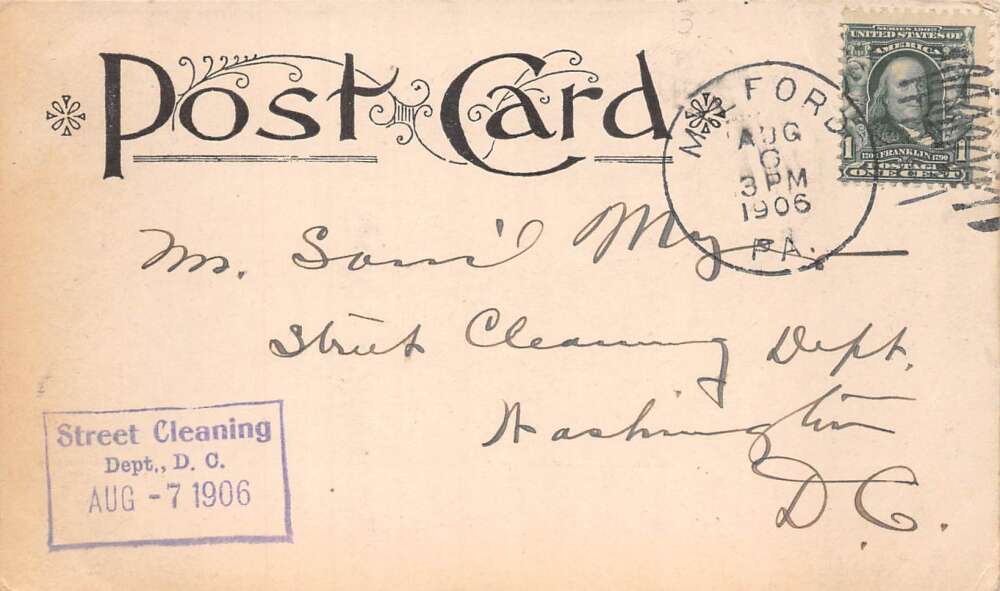 Post Card
SERIES 1902
UNITED STATES OF
AMERICA
1 FRANKLIN 1790 1
POSTAGE
ONE CENT
MILFORD
AUG
6
3 PM
1906
PA.
Mr. Sam'l
Street Cleaning Dept.
Washington
D.C.
Street Cleaning
Dept., D. C.
AUG -7 1906